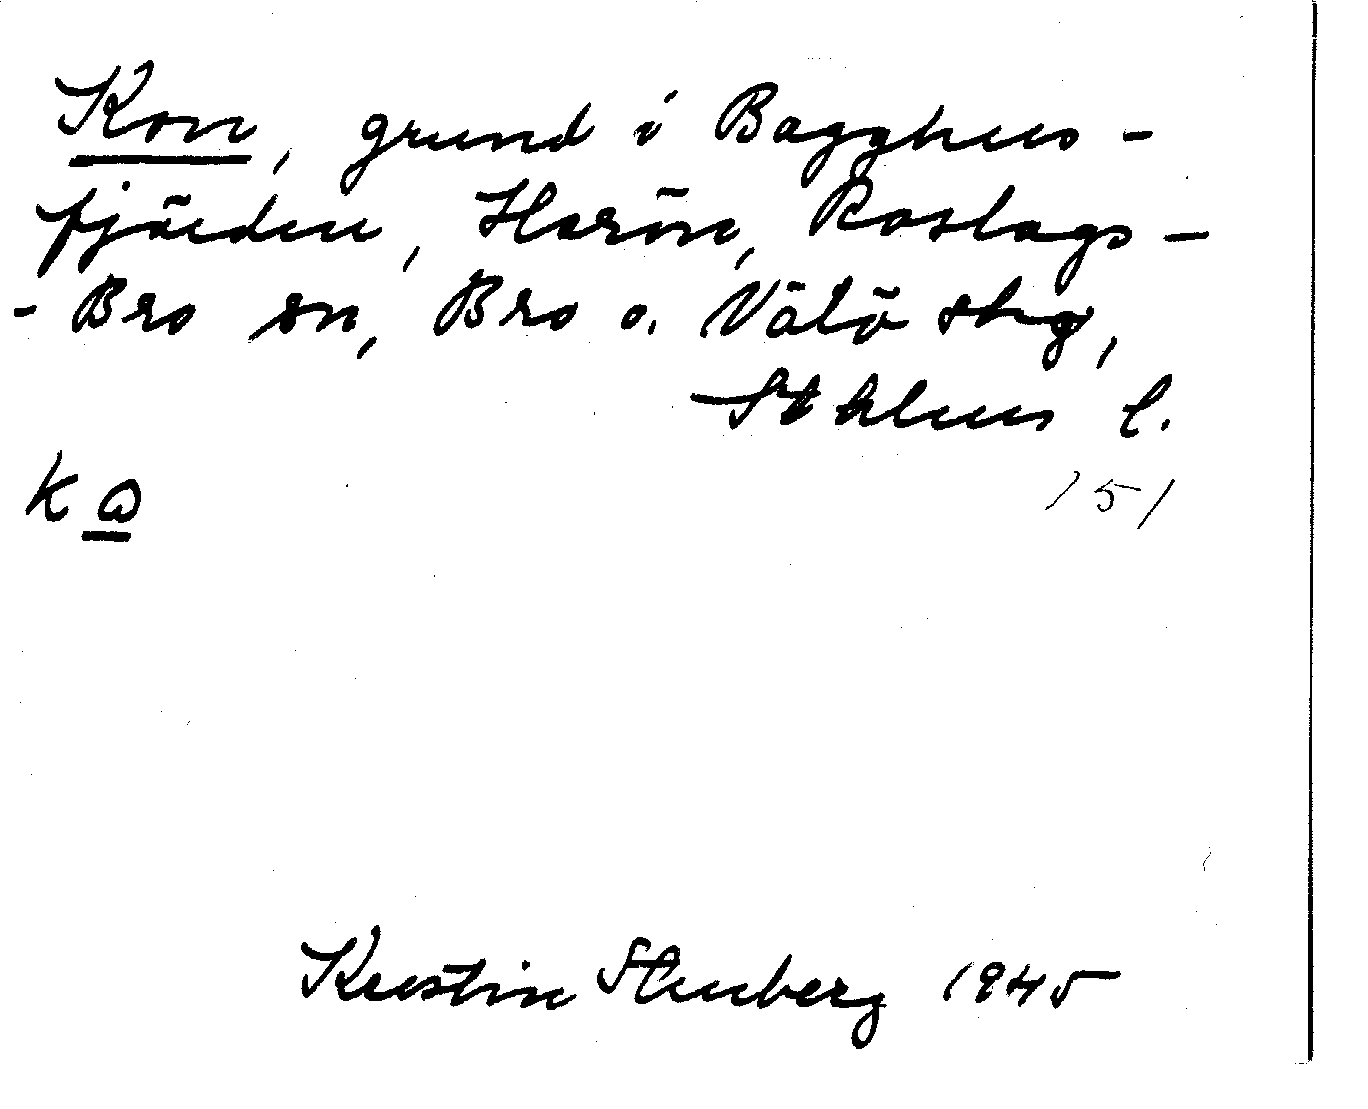 Kon, grund i Bagghus-
fjärden, Harön, Roslags-
- Bro sn, Bro o. Vätö skg,
Sthlms l.
k a
151
Kerstin Stenberg 1945